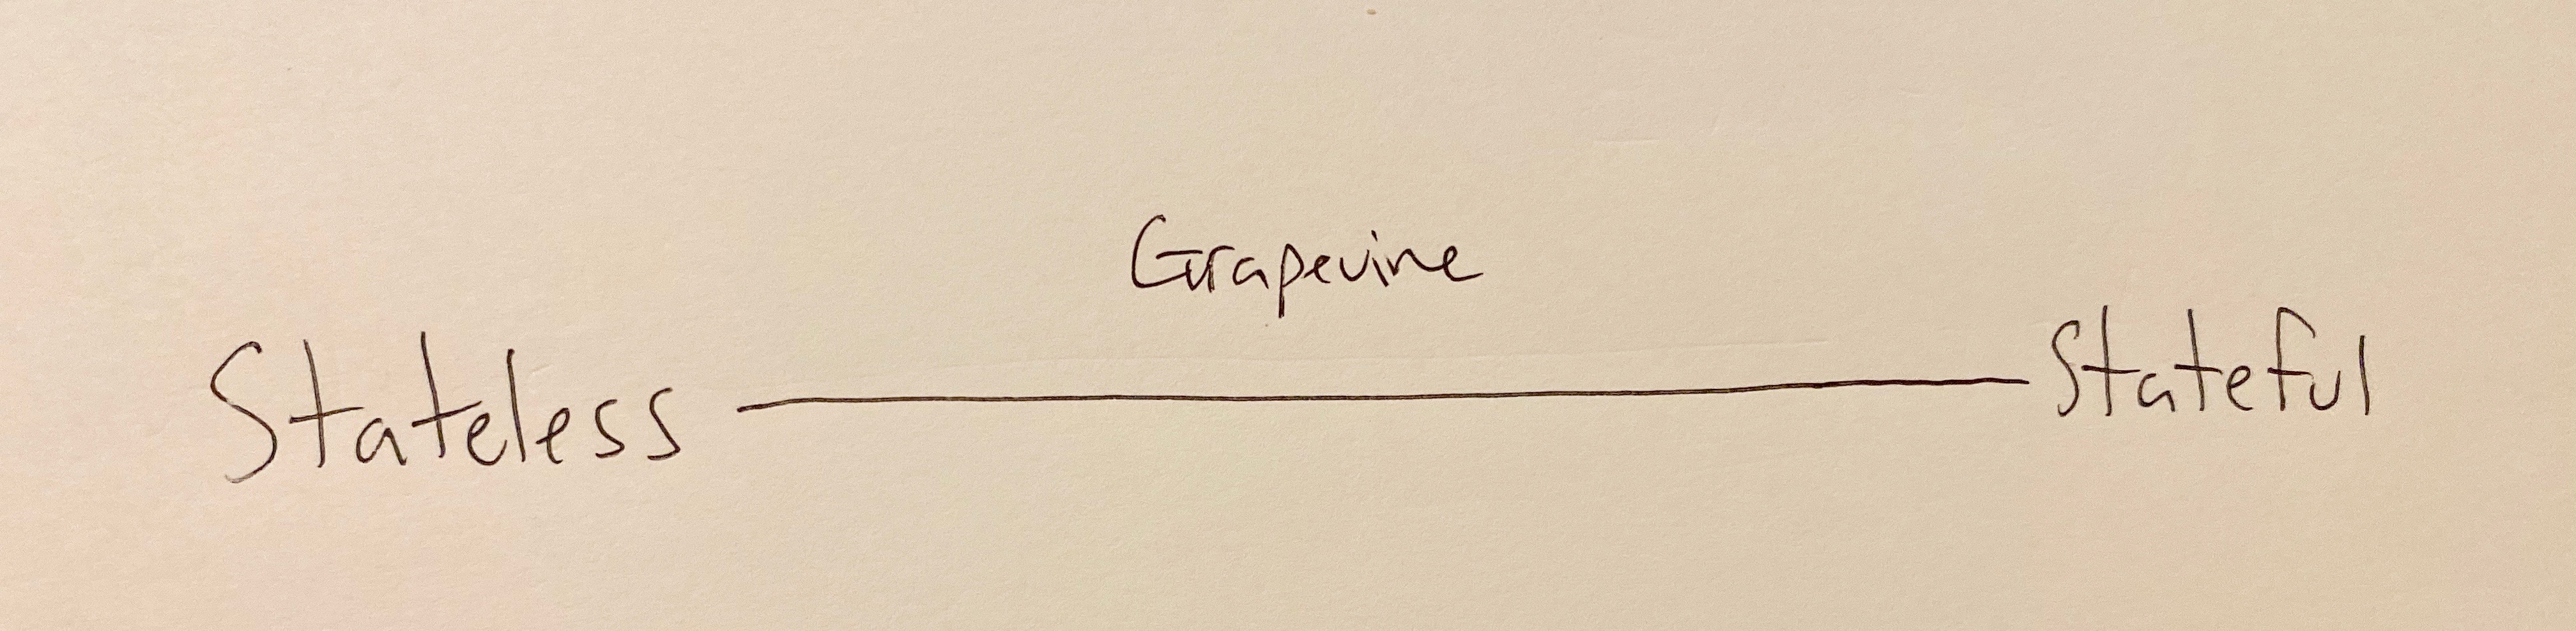 Grapevine
Stateless
Stateful